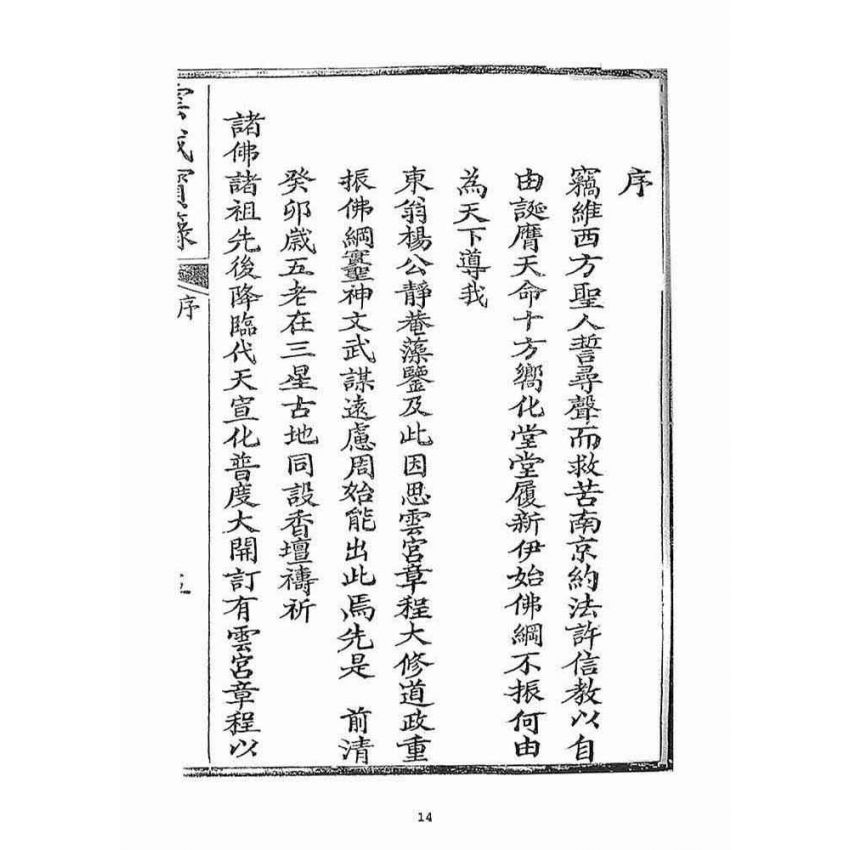 序
竊維西方聖人誓尋聲而救苦南京約法許信教以自
由誕膺天命十方嚮化堂堂履新伊始佛綱不振何由
為天下導我
東翁楊公靜菴藻鑒及此因思雲宮章程大修道政重
振佛綱實聖神文武謀遠慮周始能出此焉先是 前清
癸卯歲五老在三星古地同設香壇禱祈
諸佛諸祖先後降臨代天宣化普度大開訂有雲宮章程以
雲城寶籙
序
五
14